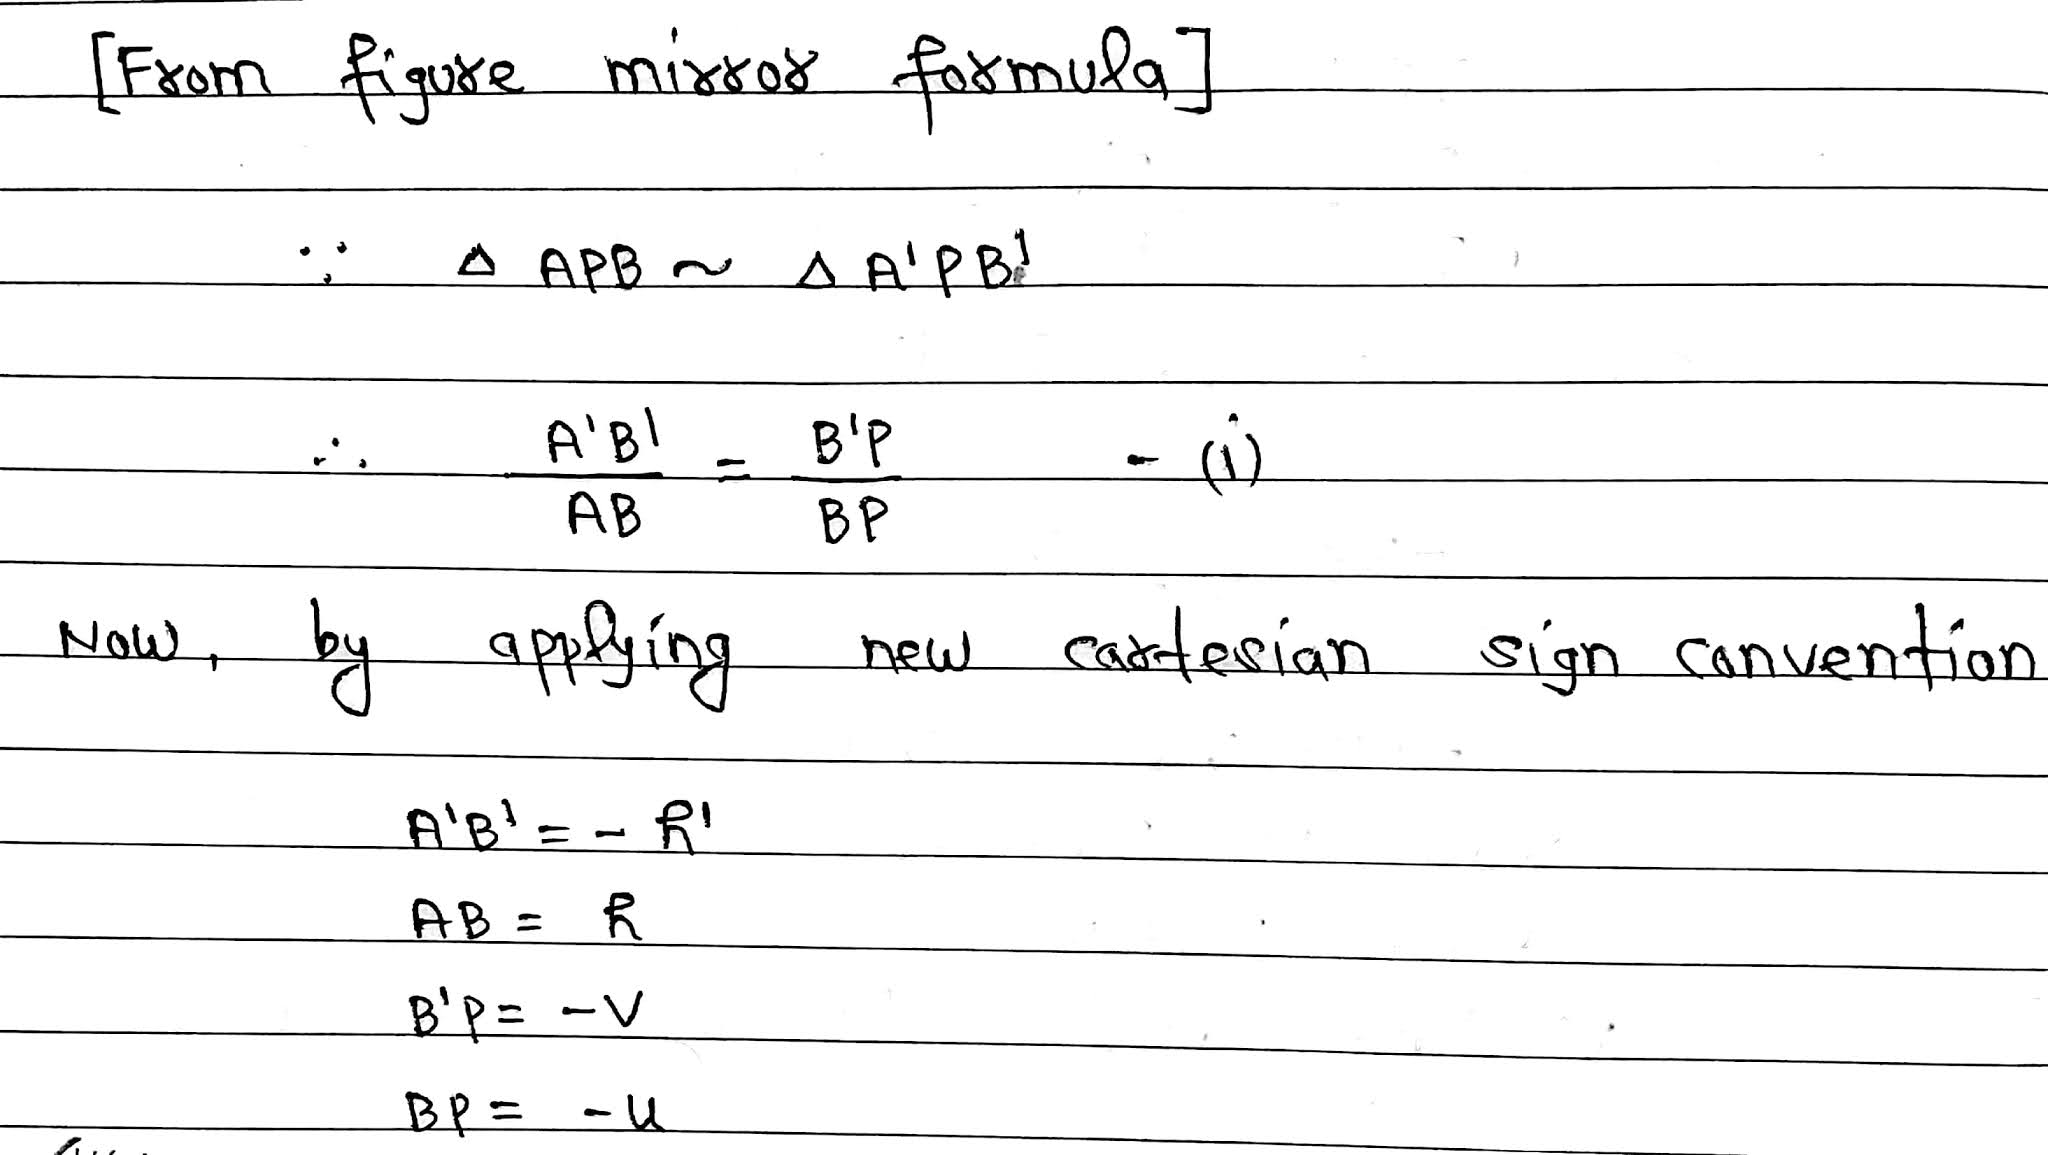 [From figure mirror formula]
∵ △ APB ~ △ A'PB'
∴ A'B'/AB = B'P/BP - (i)
Now, by applying new cartesian sign convention
A'B' = - h'
AB = h
B'P = - v
BP = - u